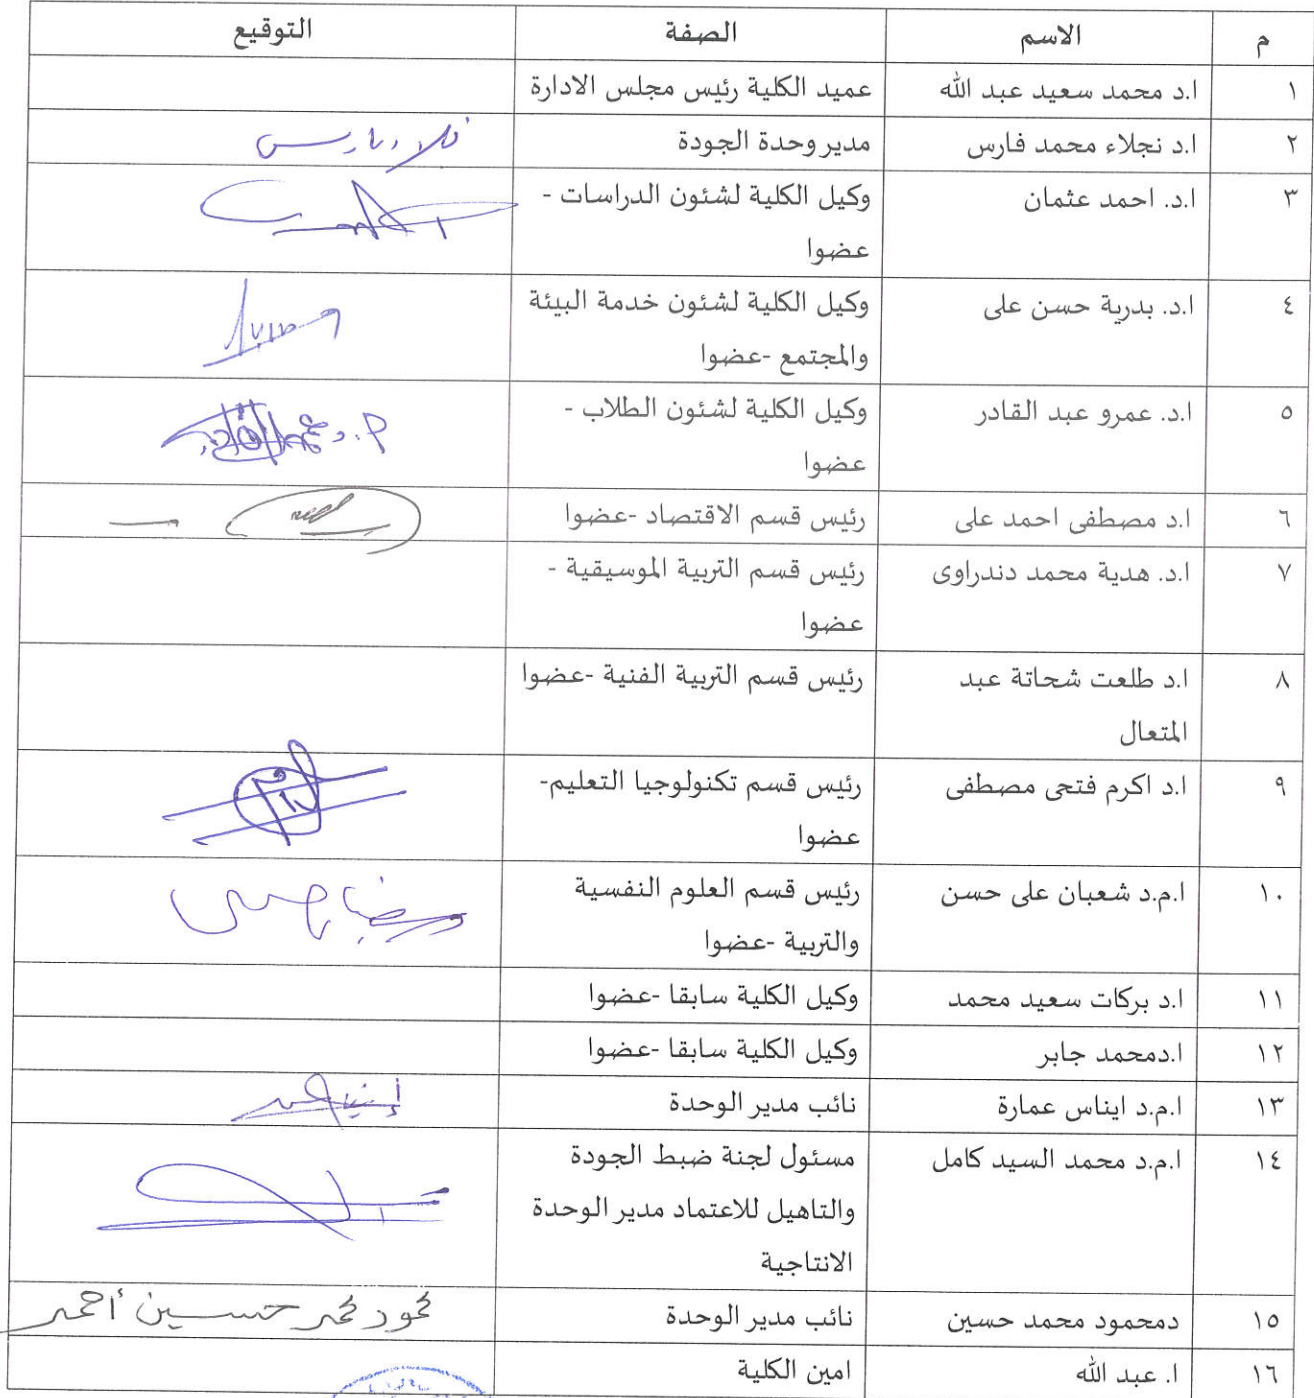 م الاسم الصفة التوقيع
١ ا.د محمد سعيد عبد الله عميد الكلية رئيس مجلس الادارة
٢ ا.د نجلاء محمد فارس مديروحدة الجودة
٣ ا.د. احمد عثمان وكيل الكلية لشئون الدراسات -
عضوا
٤ ا.د. بدرية حسن على وكيل الكلية لشئون خدمة البيئة
والمجتمع -عضوا
٥ ا.د. عمرو عبد القادر وكيل الكلية لشئون الطلاب -
عضوا
٦ ا.د مصطفى احمد على رئيس قسم الاقتصاد -عضوا
٧ ا.د. هدية محمد دندراوى رئيس قسم التربية الموسيقية -
عضوا
٨ ا.د طلعت شحاتة عبد رئيس قسم التربية الفنية -عضوا
المتعال
٩ ا.د اكرم فتحى مصطفى رئيس قسم تكنولوجيا التعليم-
عضوا
١٠ ا.م.د شعبان على حسن رئيس قسم العلوم النفسية
والتربية -عضوا
١١ ا.د بركات سعيد محمد وكيل الكلية سابقا -عضوا
١٢ ا.دمحمد جابر وكيل الكلية سابقا -عضوا
١٣ ا.م.د ايناس عمارة نائب مدير الوحدة
١٤ ا.م.د محمد السيد كامل مسئول لجنة ضبط الجودة
والتاهيل للاعتماد مدير الوحدة
الانتاجية
١٥ دمحمود محمد حسين نائب مدير الوحدة محمود محمد حسين أحمد
١٦ ا. عبد الله امين الكلية